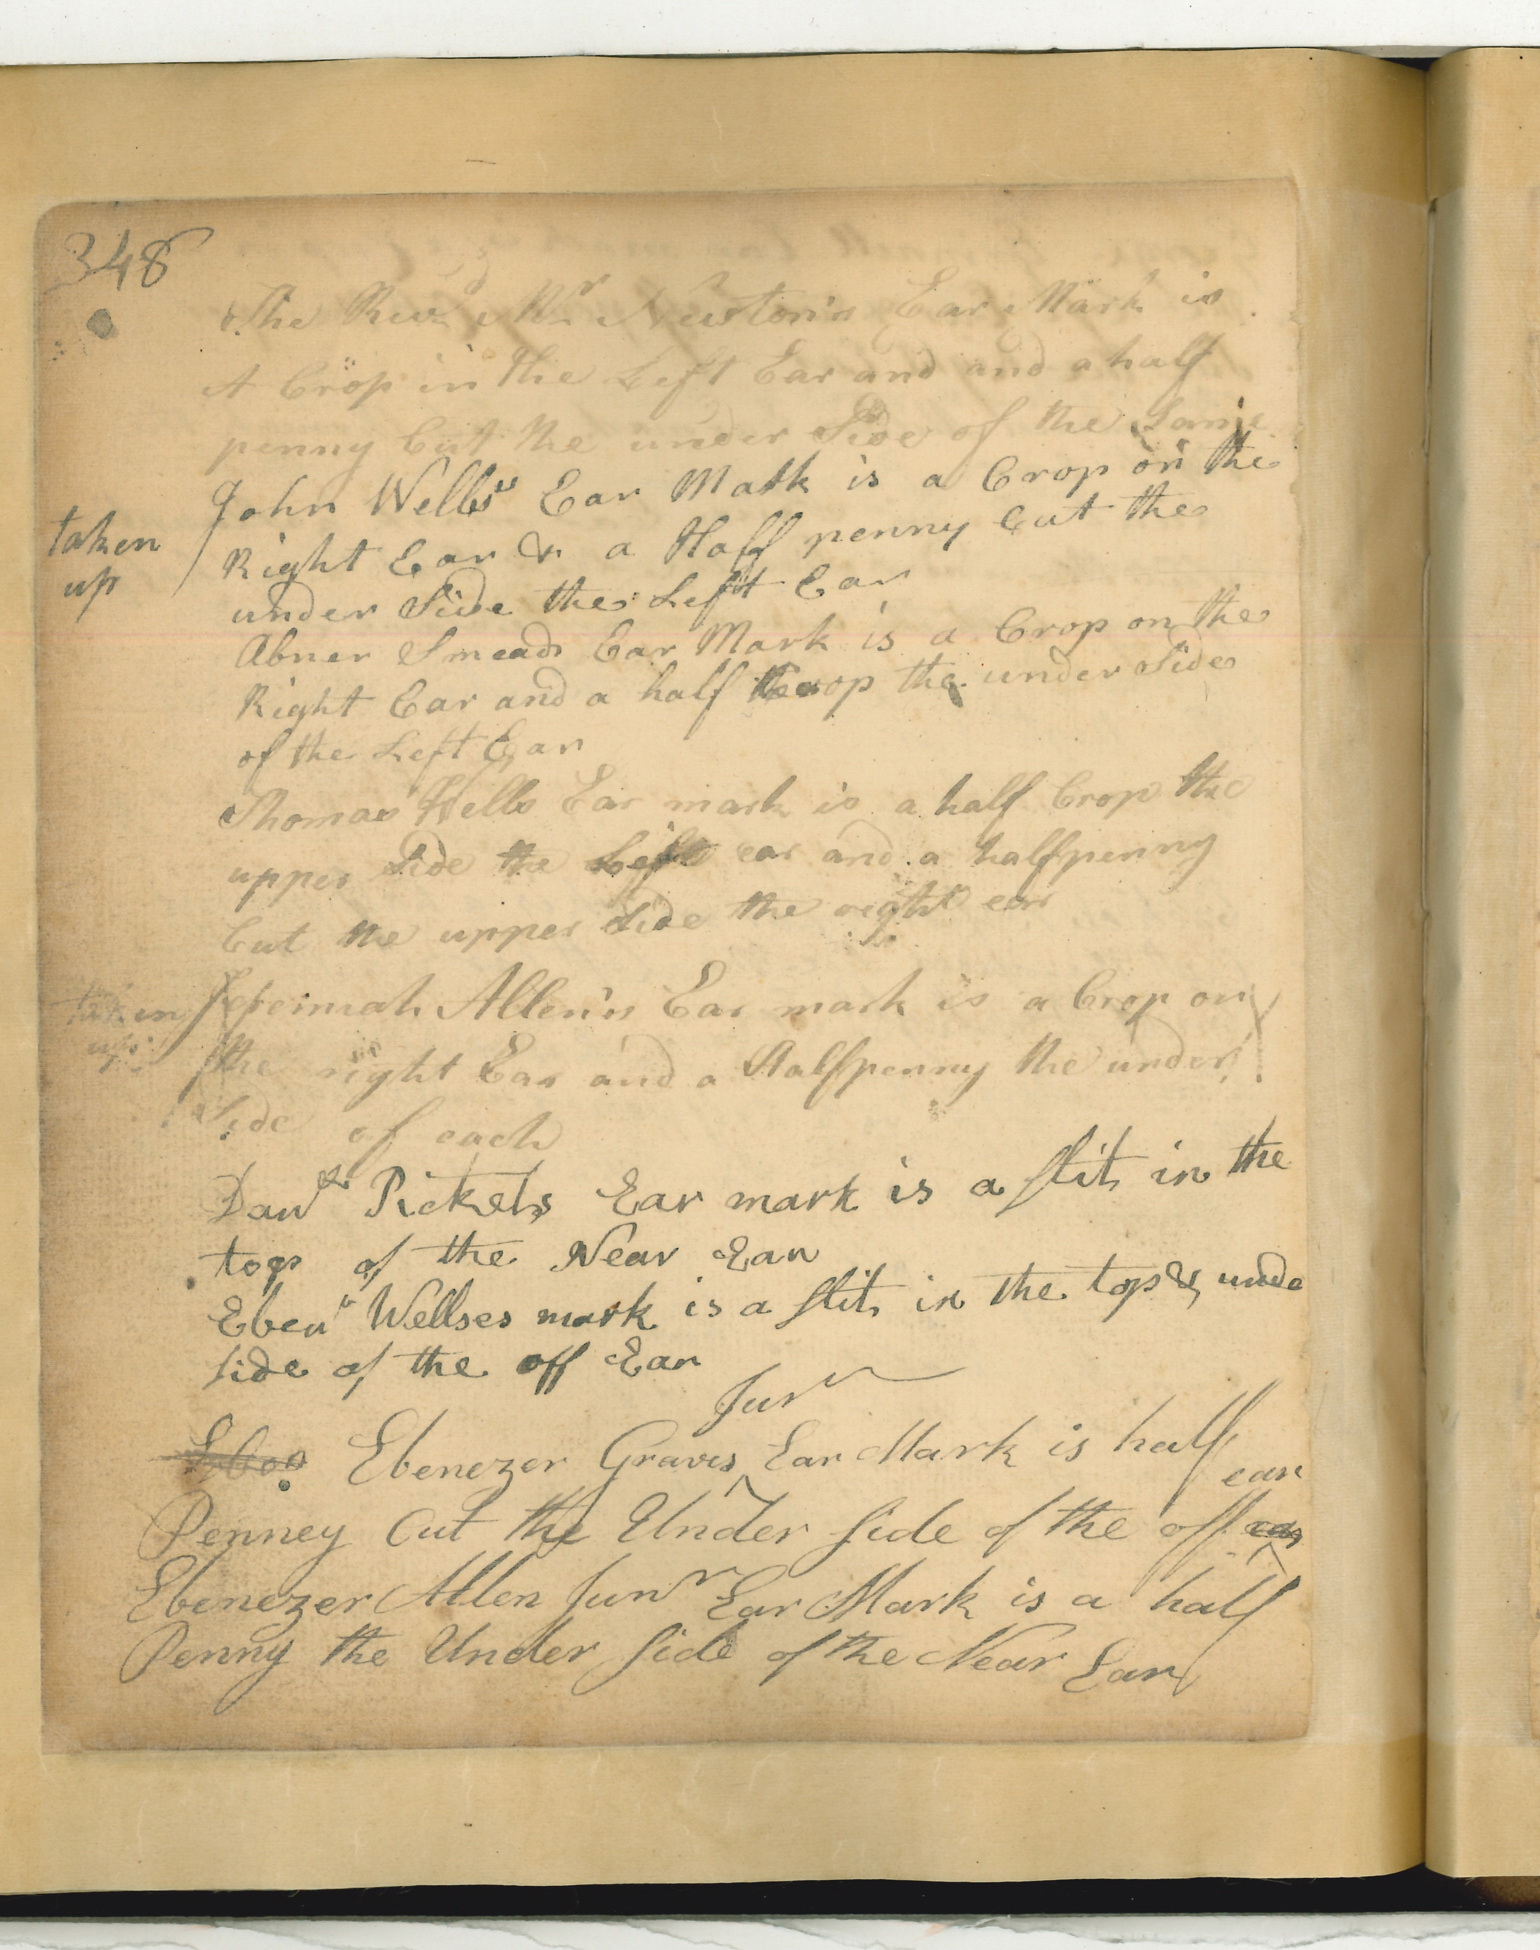 348
The Revd Mr Newton's Ear Mark is
A Crop in the Left Ear and and a half
penny Cut the under Side of the Same
John Wells's Ear Mark is a Crop on the
taken
Right Ear & a Haff penny Cut the
up
under Side the Left Ear
Abner Smeads Ear Mark is a Crop on the
Right Ear and a half Crop the under Side
of the Left Ear
Thomas Wells Ear mark is a half Crop the
upper Side the Left ear and a halfpenny
Cut the upper Side the right ear
taken Jeremiah Allen's Ear mark is a Crop on
up the right Ear and a Halfpenny the under
Side of each
Danll Pickets Ear mark is a slit in the
top of the Near Ear
Ebenr Wellses mark is a slit in the top & unde
side of the off Ear
Junr
Ebenezer Graves Ear Mark is half
ear
Penney Cut the Under side of the off ear
Ebenezer Allen Junr Ear Mark is a half
Penny the Under side of the Near Ear